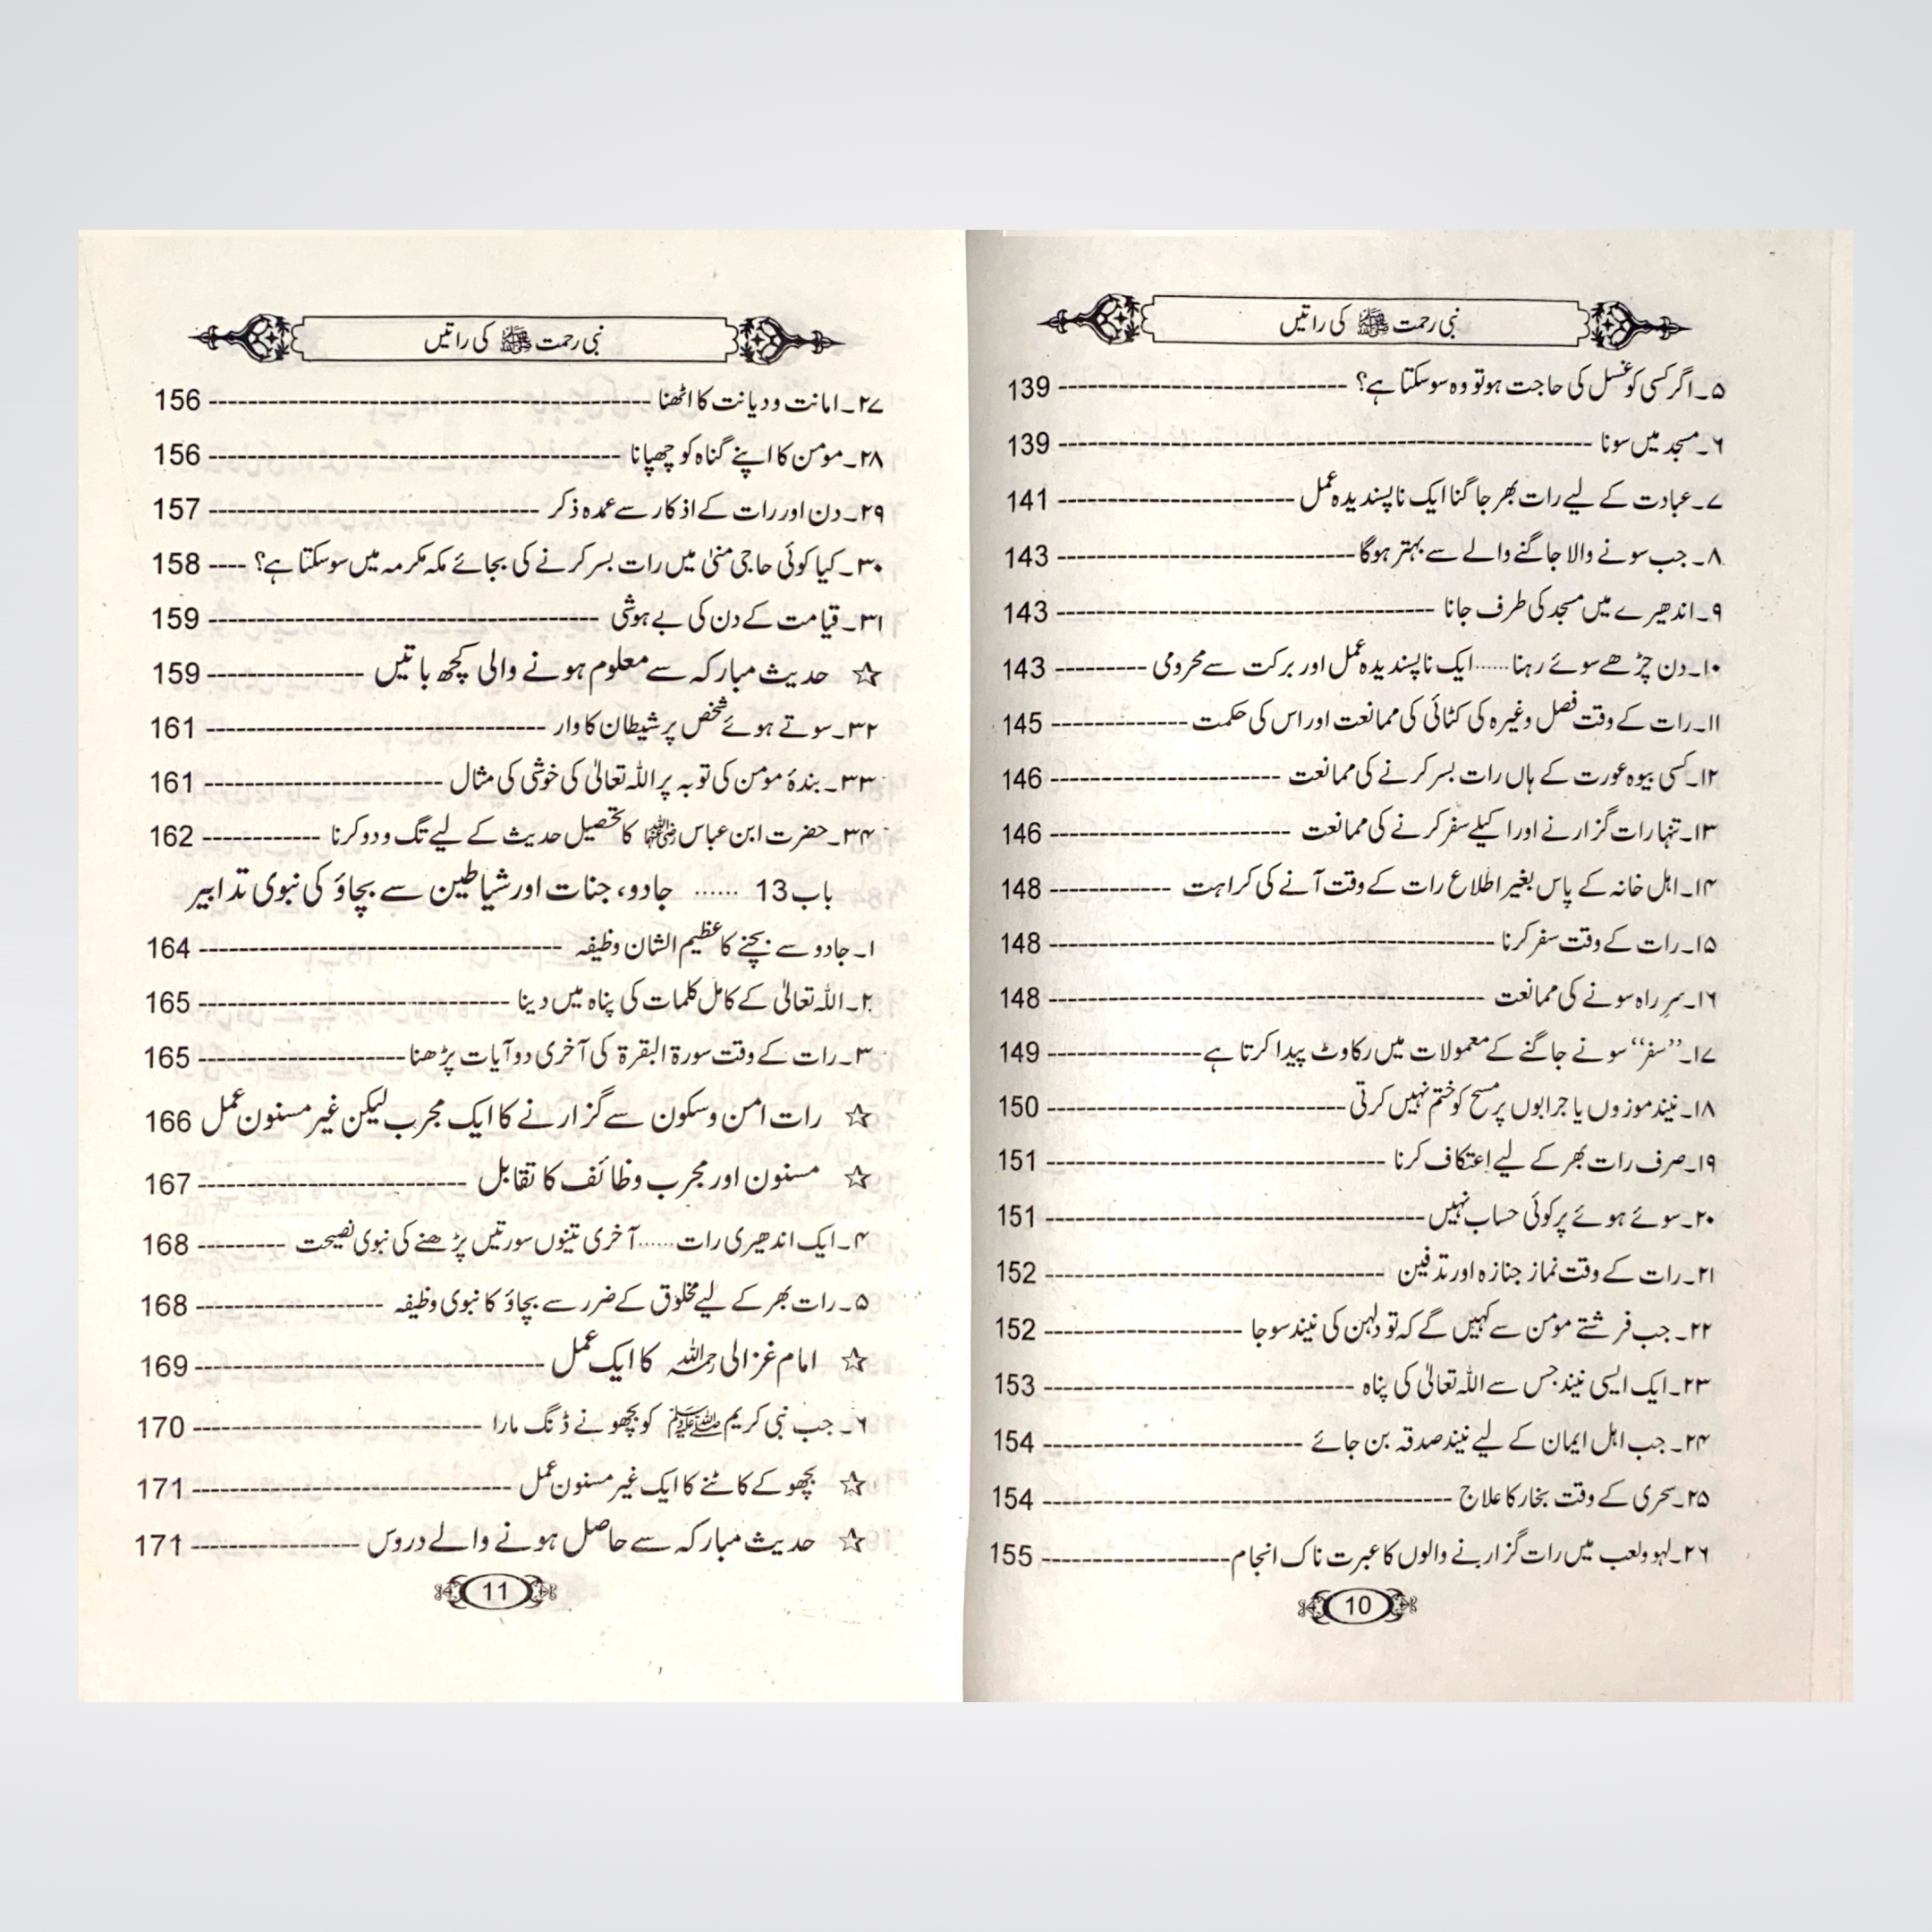 نبی رحمت ﷺ کی راتیں
۵۔ اگر کسی کو غسل کی حاجت ہو تو وہ سو سکتا ہے؟ ---------- 139
۶۔ مسجد میں سونا ---------- 139
۷۔ عبادت کے لیے رات بھر جاگنا ایک ناپسندیدہ عمل ---------- 141
۸۔ جب سونے والا جاگنے والے سے بہتر ہوگا ---------- 143
۹۔ اندھیرے میں مسجد کی طرف جانا ---------- 143
۱۰۔ دن چڑھے سوئے رہنا ...... ایک ناپسندیدہ عمل اور برکت سے محرومی ---------- 143
۱۱۔ رات کے وقت فصل وغیرہ کی کٹائی کی ممانعت اور اس کی حکمت ---------- 145
۱۲۔ کسی بیوہ عورت کے ہاں رات بسر کرنے کی ممانعت ---------- 146
۱۳۔ تنہا رات گزارنے اور اکیلے سفر کرنے کی ممانعت ---------- 146
۱۴۔ اہل خانہ کے پاس بغیر اطلاع رات کے وقت آنے کی کراہت ---------- 148
۱۵۔ رات کے وقت سفر کرنا ---------- 148
۱۶۔ سرِ راہ سونے کی ممانعت ---------- 148
۱۷۔ ’’سفر‘‘ سونے جاگنے کے معمولات میں رکاوٹ پیدا کرتا ہے ---------- 149
۱۸۔ نیند موزوں یا جرابوں پر مسح کو ختم نہیں کرتی ---------- 150
۱۹۔ صرف رات بھر کے لیے اعتکاف کرنا ---------- 151
۲۰۔ سوئے ہوئے پر کوئی حساب نہیں ---------- 151
۲۱۔ رات کے وقت نماز جنازہ اور تدفین ---------- 152
۲۲۔ جب فرشتے مومن سے کہیں گے کہ تو دلہن کی نیند سو جا ---------- 152
۲۳۔ ایک ایسی نیند جس سے اللہ تعالیٰ کی پناہ ---------- 153
۲۴۔ جب اہل ایمان کے لیے نیند صدقہ بن جائے ---------- 154
۲۵۔ سحری کے وقت بخار کا علاج ---------- 154
۲۶۔ لہو ولعب میں رات گزارنے والوں کا عبرت ناک انجام ---------- 155
10
نبی رحمت ﷺ کی راتیں
۲۷۔ امانت ودیانت کا اٹھنا ---------- 156
۲۸۔ مومن کا اپنے گناہ کو چھپانا ---------- 156
۲۹۔ دن اور رات کے اذکار سے عمدہ ذکر ---------- 157
۳۰۔ کیا کوئی حاجی منیٰ میں رات بسر کرنے کی بجائے مکہ مکرمہ میں سو سکتا ہے؟ ---- 158
۳۱۔ قیامت کے دن کی بے ہوشی ---------- 159
☆ حدیث مبارکہ سے معلوم ہونے والی کچھ باتیں ---------- 159
۳۲۔ سوتے ہوئے شخص پر شیطان کا وار ---------- 161
۳۳۔ بندۂ مومن کی توبہ پر اللہ تعالیٰ کی خوشی کی مثال ---------- 161
۳۴۔ حضرت ابن عباس رضی اللہ عنہما کا تحصیل حدیث کے لیے تگ ودو کرنا ---------- 162
باب 13 ...... جادو، جنات اور شیاطین سے بچاؤ کی نبوی تدابیر
۱۔ جادو سے بچنے کا عظیم الشان وظیفہ ---------- 164
۲۔ اللہ تعالیٰ کے کامل کلمات کی پناہ میں دینا ---------- 165
۳۔ رات کے وقت سورۃ البقرۃ کی آخری دو آیات پڑھنا ---------- 165
☆ رات امن وسکون سے گزارنے کا ایک مجرب لیکن غیر مسنون عمل 166
☆ مسنون اور مجرب وظائف کا تقابل ---------- 167
۴۔ ایک اندھیری رات ...... آخری تینوں سورتیں پڑھنے کی نبوی نصیحت ---------- 168
۵۔ رات بھر کے لیے مخلوق کے ضرر سے بچاؤ کا نبوی وظیفہ ---------- 168
☆ امام غزالی رحمہ اللہ کا ایک عمل ---------- 169
۶۔ جب نبی کریم ﷺ کو بچھو نے ڈنگ مارا ---------- 170
☆ بچھو کے کاٹنے کا ایک غیر مسنون عمل ---------- 171
☆ حدیث مبارکہ سے حاصل ہونے والے دروس ---------- 171
11